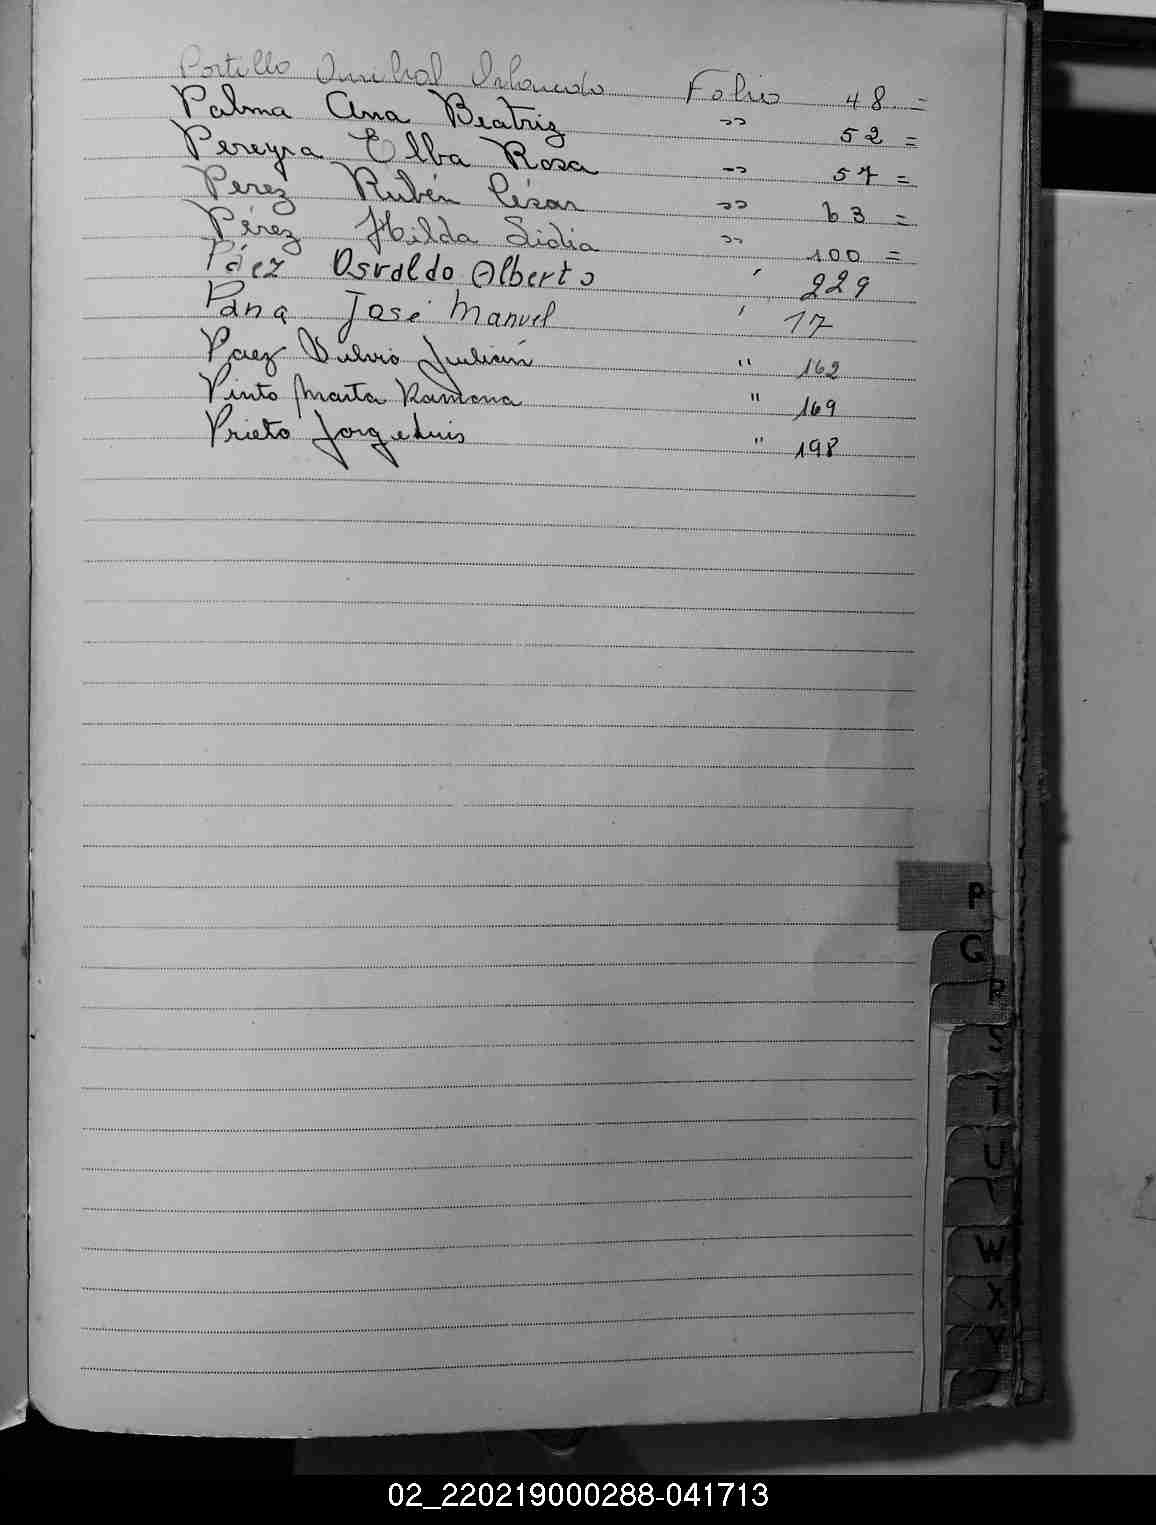 Portillo Anibal Orlando Folio 48 =
Palma Ana Beatriz " 52 =
Pereyra Elba Rosa " 57 =
Perez Rubén César " 63 =
Pérez Hilda Lidia " 100 =
Páez Osvaldo Alberto ' 229
José Manuel ' 17
Paez Julián " 162
Pinto Marta Ramona " 169
Prieto Jorge Luis " 198
P
G
R
S
T
U
W
X
Y
02_220219000288-041713